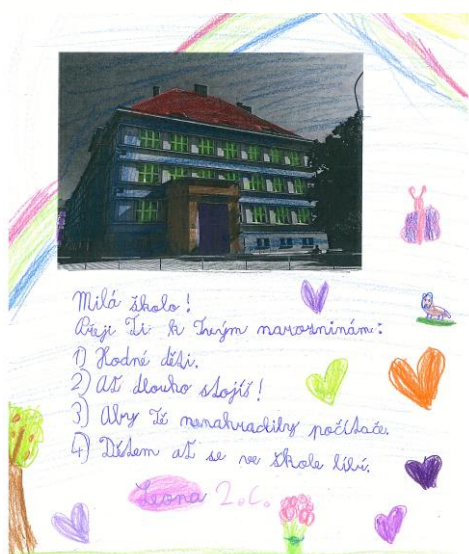 Milá školo!
Přeji Ti k Tvým narozninám:
1) Hodné děti.
2) Ať dlouho stojíš!
3) Aby Tě nenahradily počítače.
4) Dětem ať se ve škole líbí.
Leona 2.C.